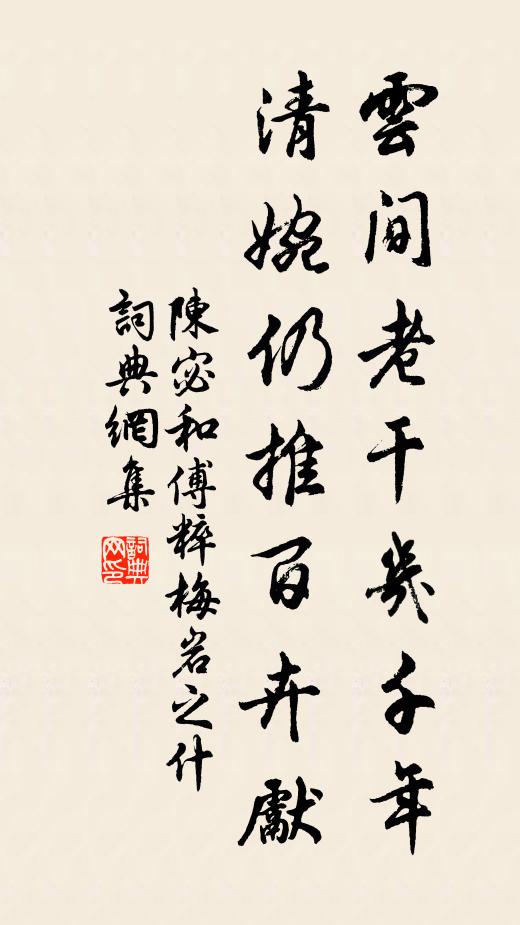 雲間老干幾千年
清婉仍推百卉獻
陳宓和傅粹梅岩之什
詞典網集
詞典网印